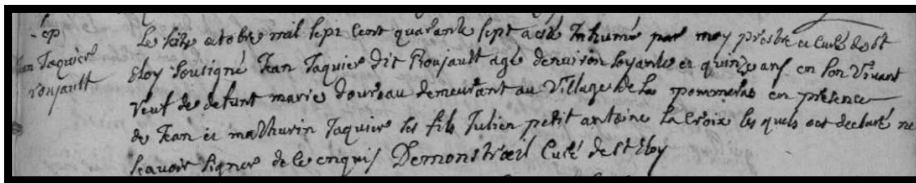 Le seize octobre mil sept cent quarante sept a esté Inhumé par moy prestre et Curé de St
Eloy sousigné Jean Jaquier dit Rioujault agé denviron soyante et quinze ans en son vivant
Veuf de defunt marie doureau demeurant au Village de las pommeras en presence
de Jean et mathurin Jaquier ses fils Julien petit antoine la Croix les quels ont declaré ne
scavoir signer de ce enquis Demonstroeil Curé de St Eloy